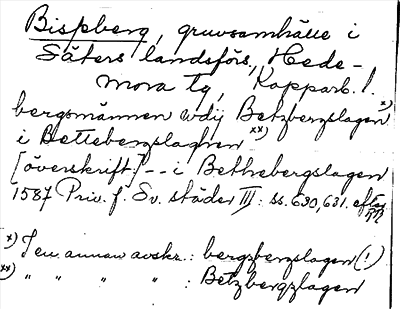 Bispberg, gruvsamhälle i
Säters landsförs., Hede-
mora tg, Kopparb. l.
bergsmännen udj Betzbergslagen x)
i Bettebergslaghen xx)
[överskrift] -- i Bethebergslagen
1587 Priv. f. Sv. städer III: ss. 630, 631. efter
x) I en annan avskr.: bergzbergslagen (!)
xx) " " " " : Betzbergzlagen